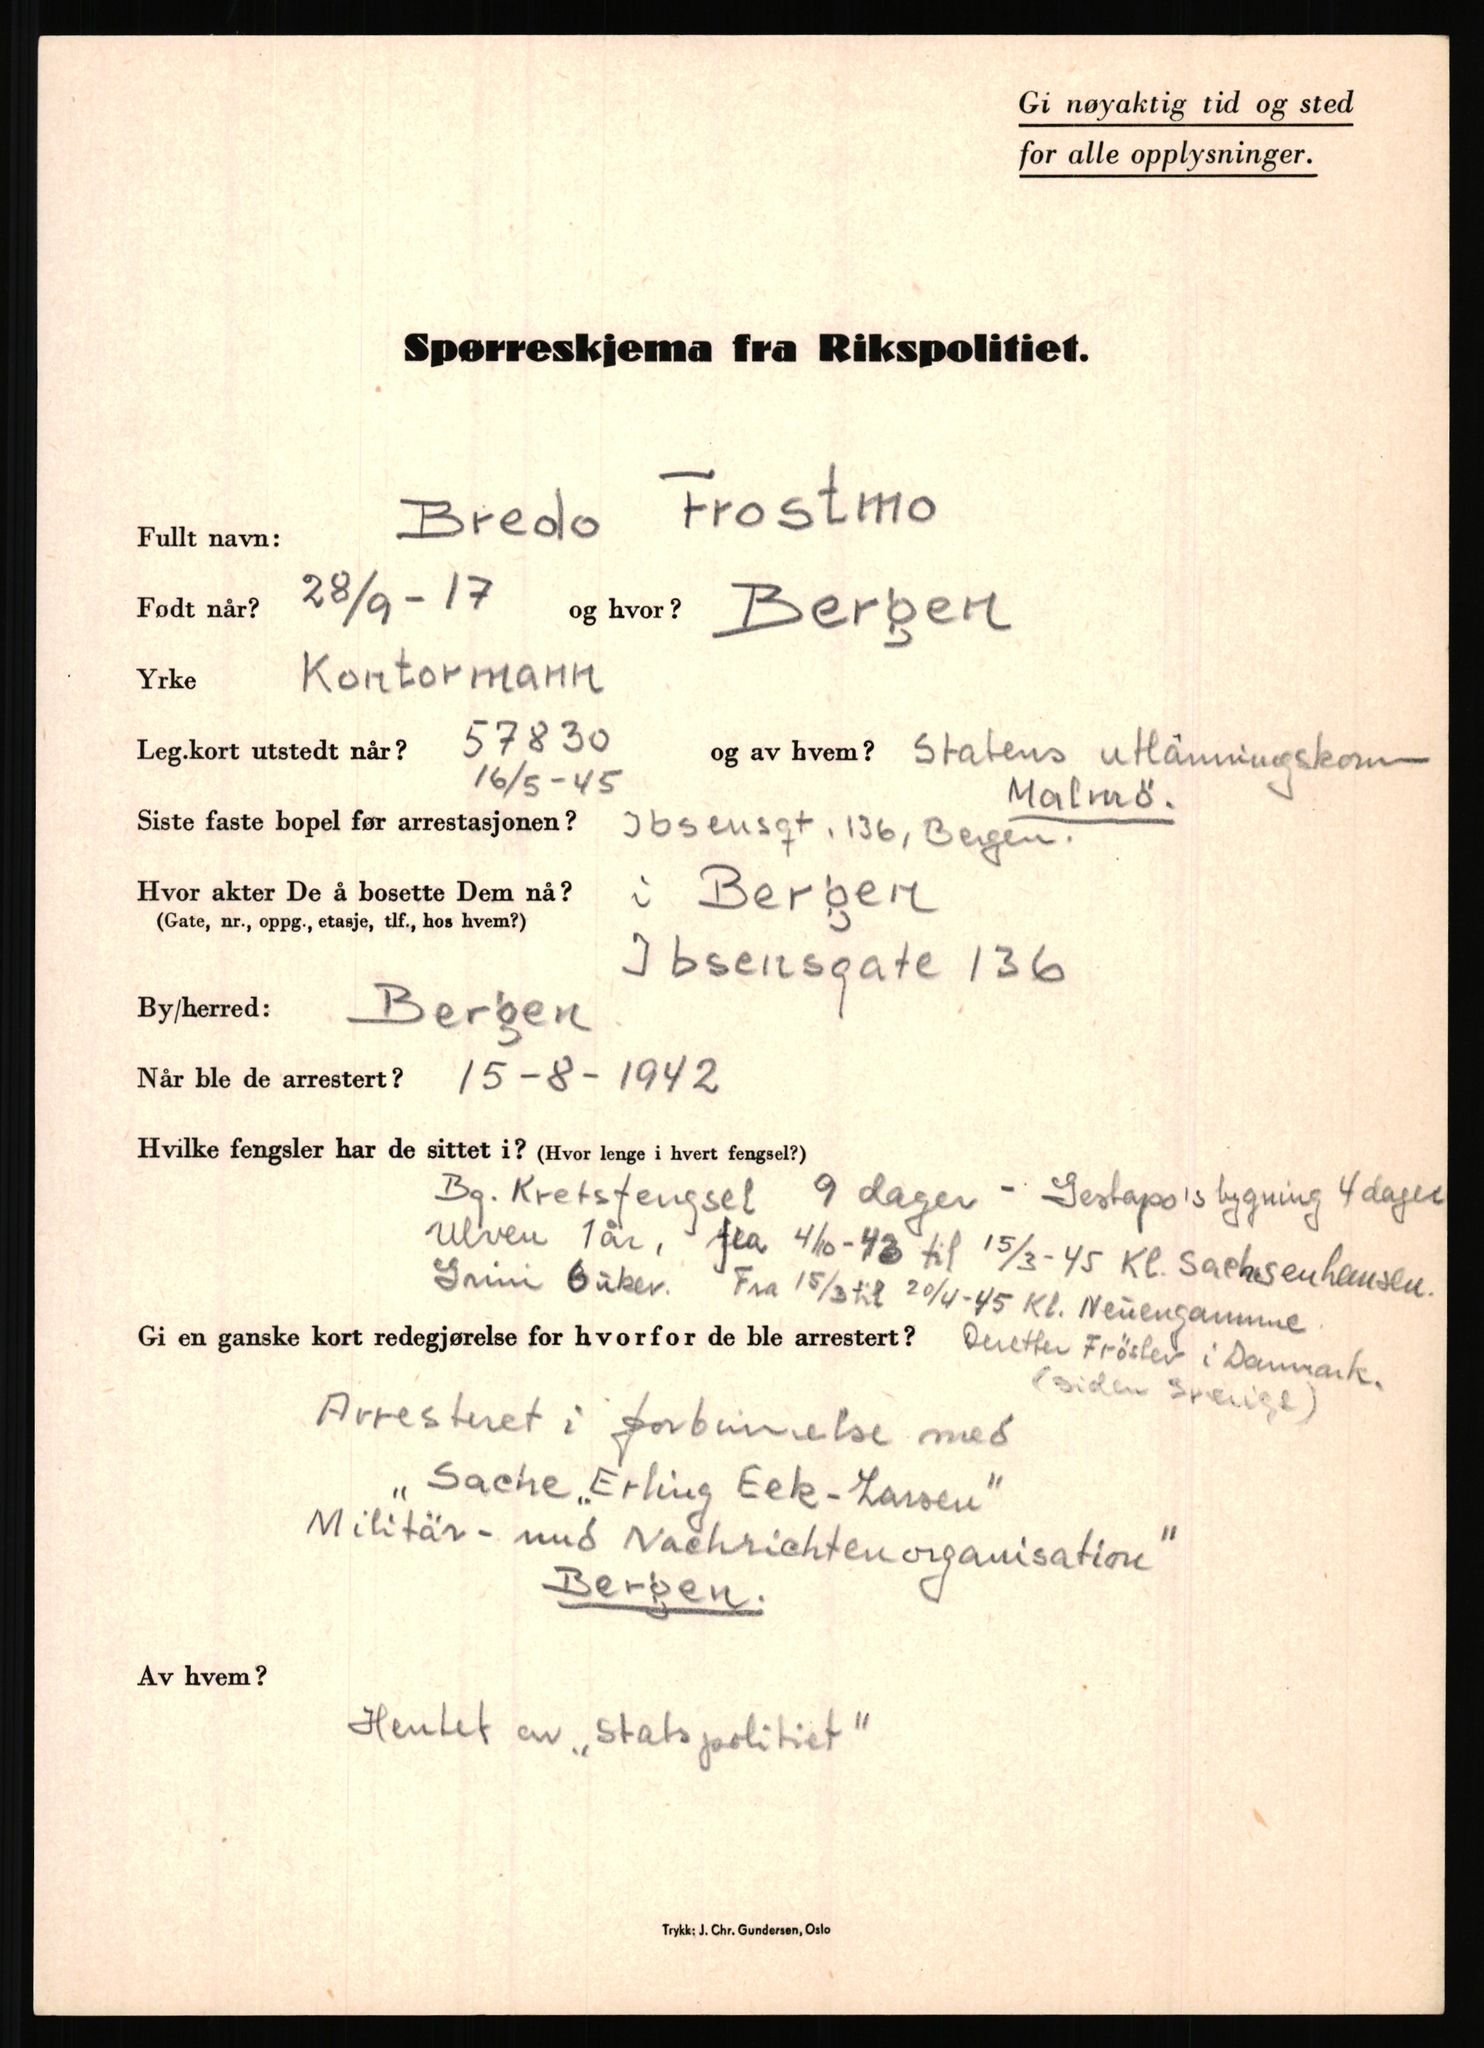 Gi nøyaktig tid og sted
for alle opplysninger.
Spørreskjema fra Rikspolitiet.
Fullt navn: Bredo Frostmo
Født når? 28/9 - 17 og hvor? Bergen
Yrke Kontormann
Leg.kort utstedt når? 57830 og av hvem? Statens utlänningskom
16/5 - 45 Malmö.
Siste faste bopel før arrestasjonen? Ibsensgt. 136, Bergen.
Hvor akter De å bosette Dem nå? i Bergen
(Gate, nr., oppg., etasje, tlf., hos hvem?)
Ibsensgate 136
By/herred: Bergen
Når ble de arrestert? 15 - 8 - 1942
Hvilke fengsler har de sittet i? (Hvor lenge i hvert fengsel?)
Bg. Kretsfengsel 9 dager - Gestapo's bygning 4 dager
Ulven 1 år, fra 4/10 - 43 til 15/3 - 45 Kl. Sachsenhausen.
Grini 6 uker. Fra 15/3 til 20/4 - 45 Kl. Neuengamme
Gi en ganske kort redegjørelse for hvorfor de ble arrestert? Deretter Fröslev i Danmark.
(siden Sverige)
Arresteret i forbinnelse med
„Sache „Erling Eek-Larsen"
Militär- und Nachrichtenorganisation"
Bergen.
Av hvem?
Hentet av „Statspolitiet"
Trykk: J. Chr. Gundersen, Oslo